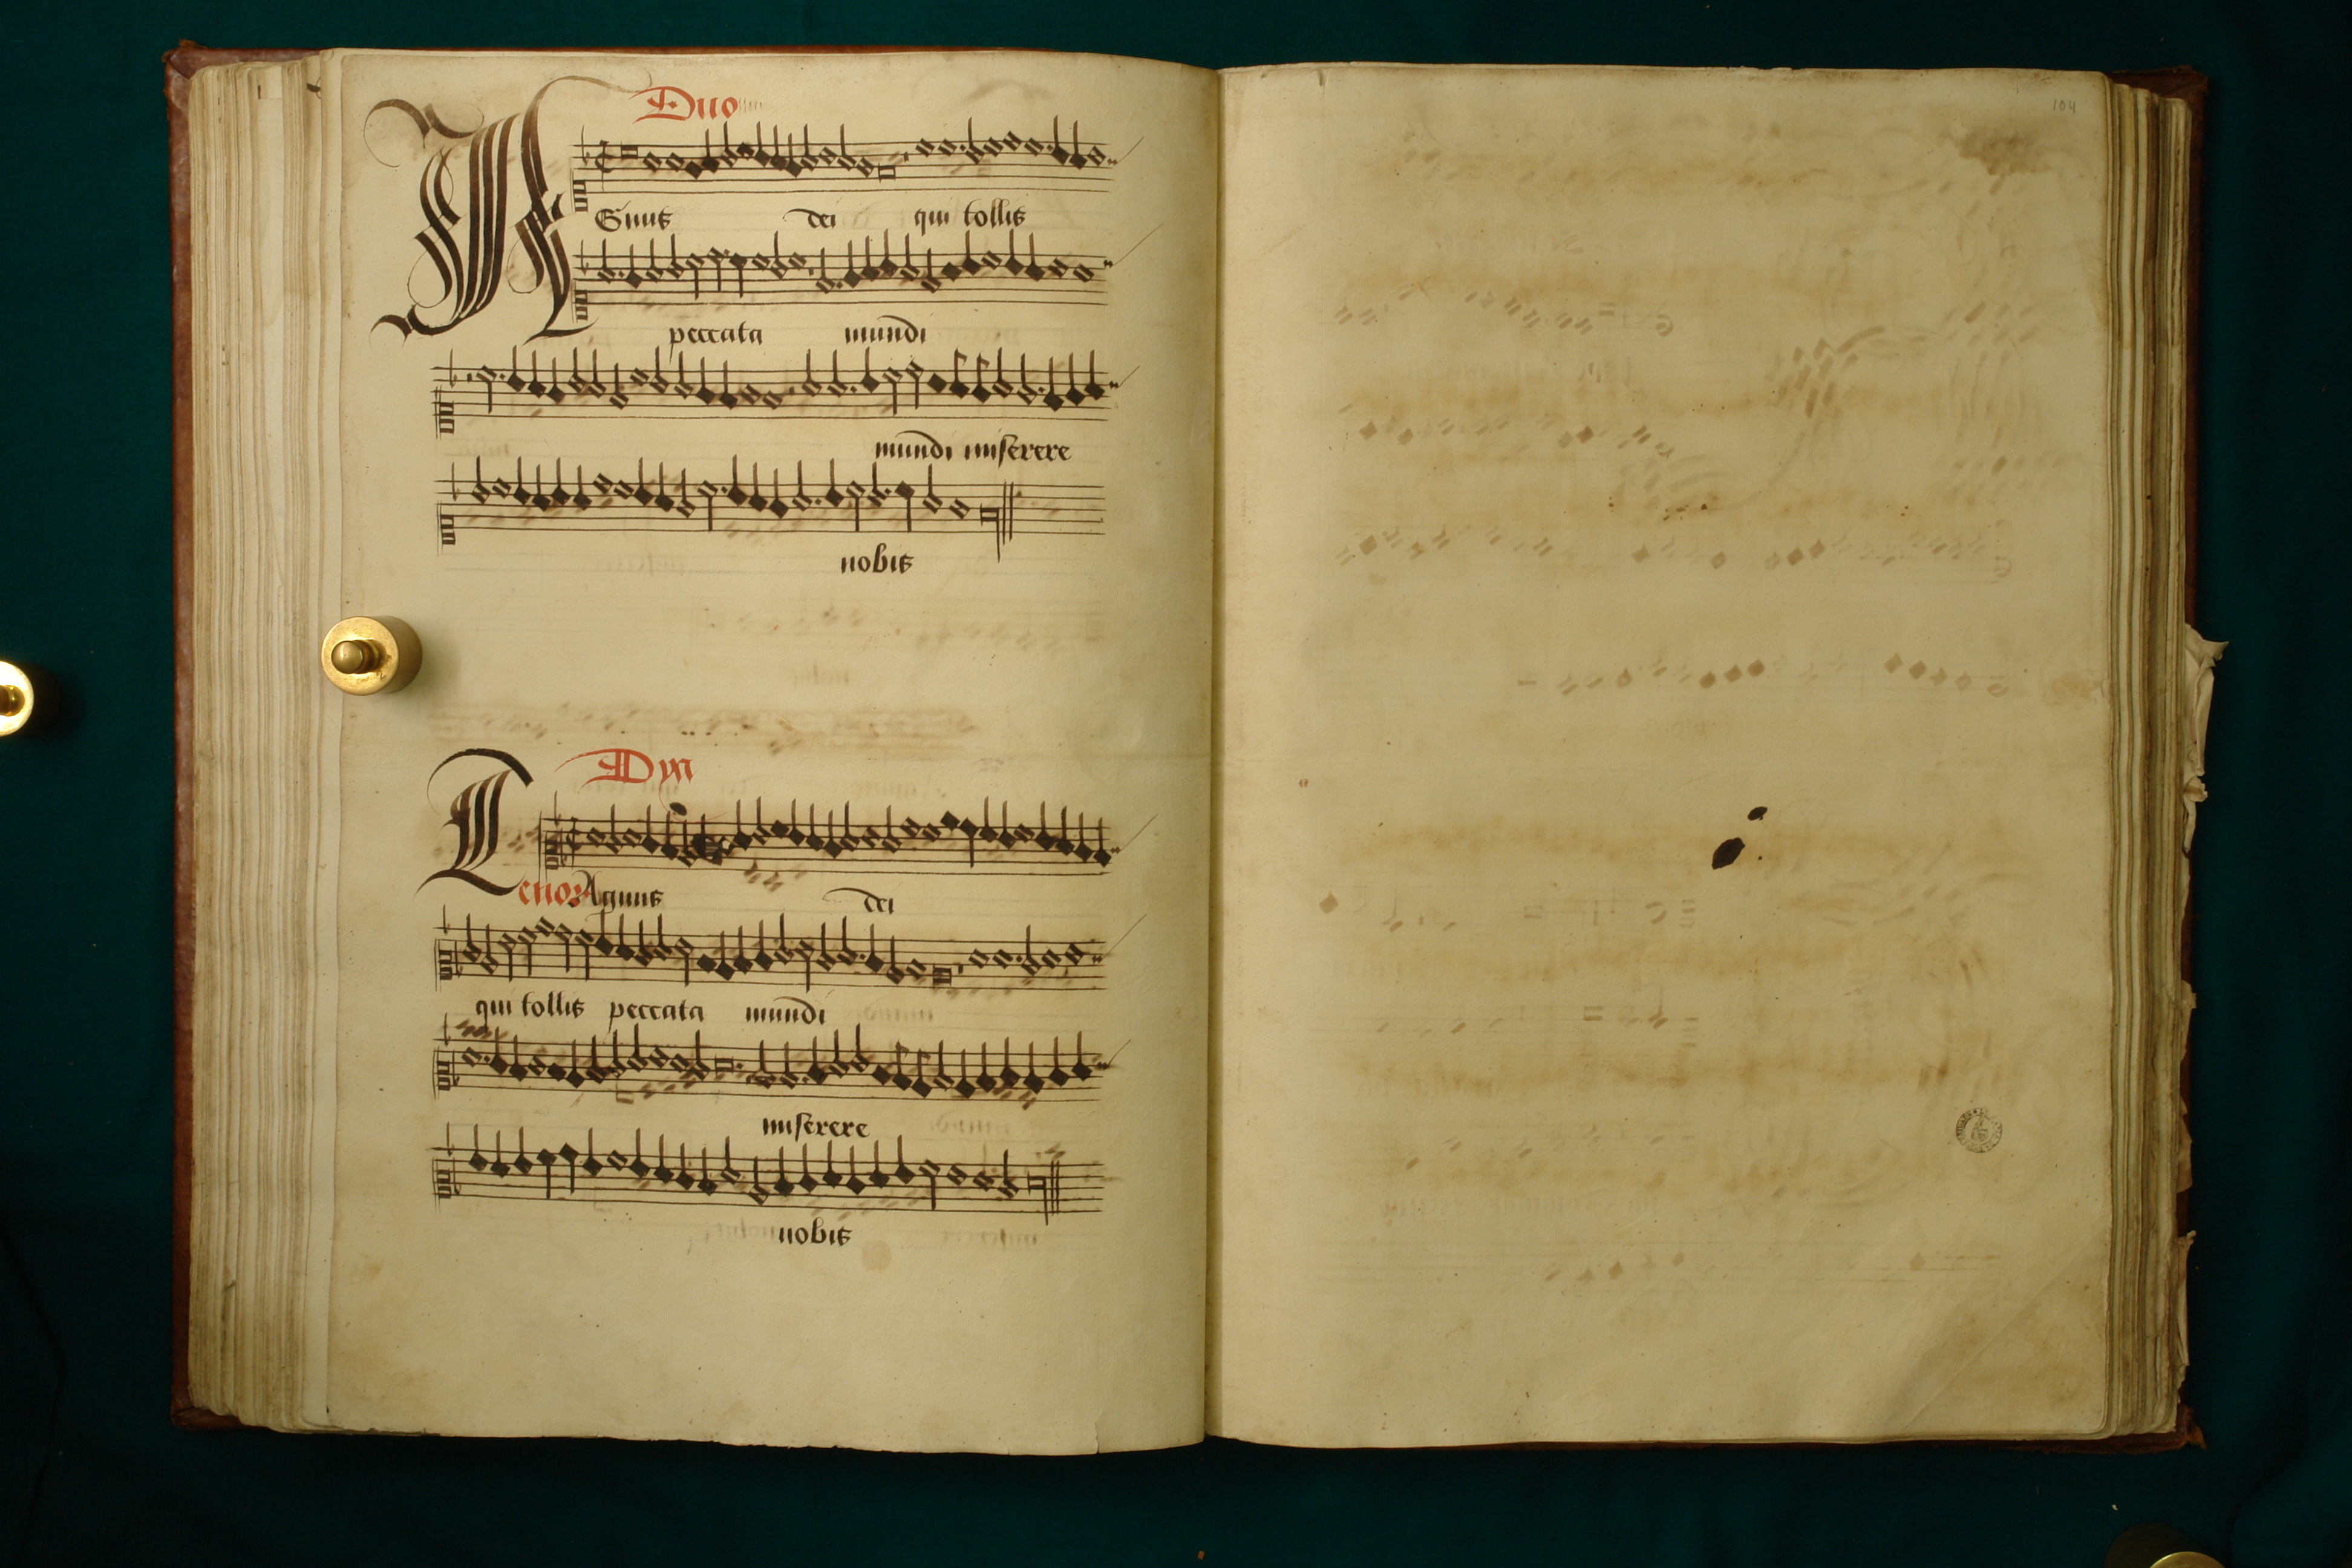 Duo
Agnus dei qui tollis
peccata mundi
mundi miserere
nobis
Duo
Tenor Agnus dei
qui tollis peccata mundi
miserere
nobis
104